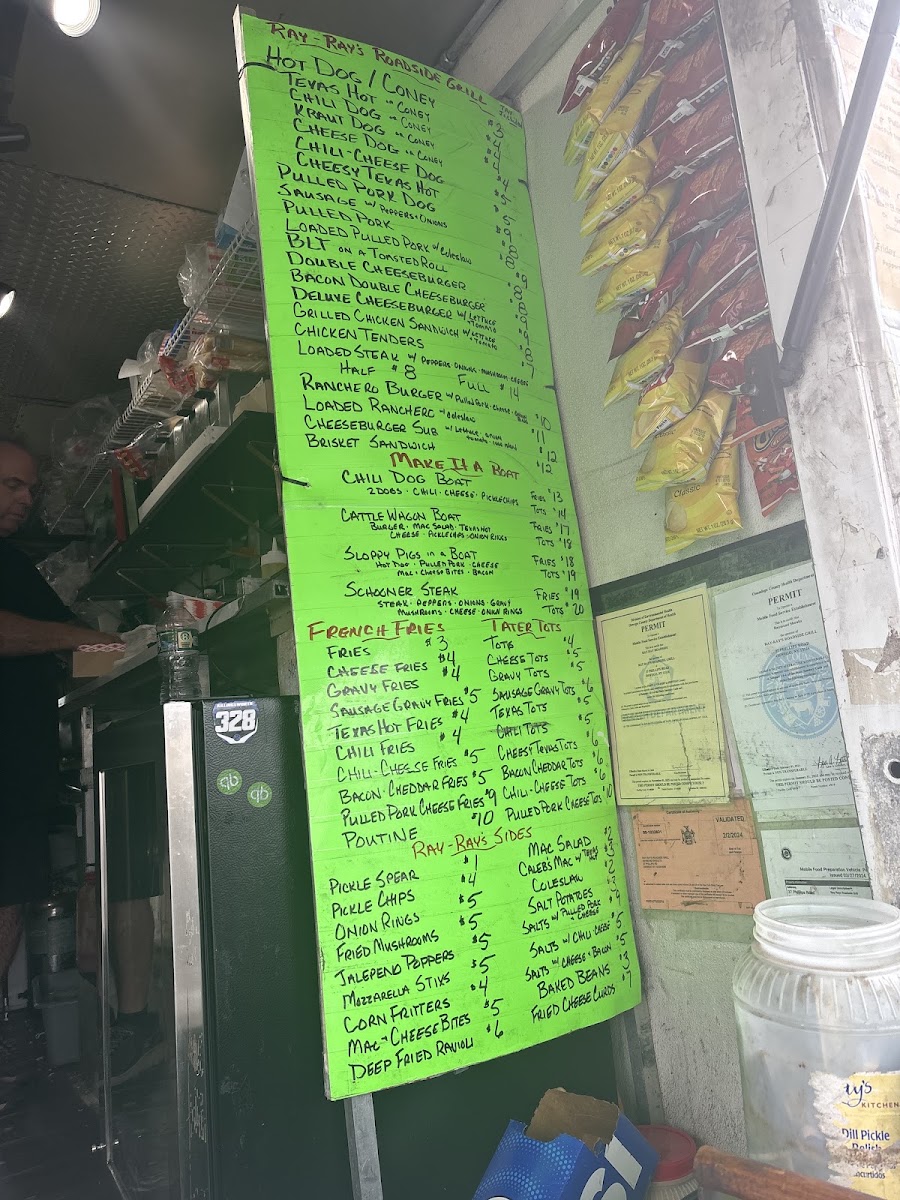 RAY-RAY'S ROADSIDE GRILL
HOT DOG / CONEY $3
TEXAS HOT or CONEY $4
CHILI DOG or CONEY $4
KRAUT DOG or CONEY $4
CHEESE DOG or CONEY $4
CHILI-CHEESE DOG
CHEESY TEXAS HOT
PULLED PORK DOG
SAUSAGE W/ PEPPERS+ONIONS
PULLED PORK
LOADED PULLED PORK W/ Coleslaw
BLT ON A TOASTED ROLL
DOUBLE CHEESEBURGER
BACON DOUBLE CHEESEBURGER
DELUXE CHEESEBURGER W/ LETTUCE + TOMATO
GRILLED CHICKEN SANDWICH W/ LETTUCE + TOMATO
CHICKEN TENDERS
LOADED STEAK W/ PEPPERS·ONIONS·MUSHROOM·CHEESE
HALF $8 FULL $14
RANCHERO BURGER W/ Pulled Pork·CHEESE· $10
LOADED RANCHERO +Coleslaw $11
CHEESEBURGER SUB W/ LETTUCE·ONION TOMATO $12
BRISKET SANDWICH $12
MAKE IT A BOAT
CHILI DOG BOAT FRIES $13
2 DOGS · CHILI · CHEESE · PICKLE CHIPS TOTS $14
CATTLE WAGON BOAT FRIES $17
BURGER · MAC SALAD · TEXAS HOT
CHEESE · PICKLE CHIPS · ONION RINGS TOTS $18
SLOPPY PIGS IN A BOAT FRIES $18
HOT DOG · PULLED PORK · CHEESE
MAC+CHEESE BITES · BACON TOTS $19
SCHOONER STEAK FRIES $19
STEAK · PEPPERS · ONIONS · GRAVY
MUSHROOMS · CHEESE · ONION RINGS TOTS $20
FRENCH FRIES
FRIES $3
CHEESE FRIES $4
GRAVY FRIES $4
SAUSAGE GRAVY FRIES $5
TEXAS HOT FRIES $4
CHILI FRIES $4
CHILI-CHEESE FRIES $5
BACON-CHEDDAR FRIES $5
PULLED PORK CHEESE FRIES $9
POUTINE $10
TATER TOTS
TOTS $4
CHEESE TOTS $5
GRAVY TOTS $5
SAUSAGE GRAVY TOTS $6
TEXAS TOTS $5
CHILI TOTS $5
CHEESY TEXAS TOTS $6
BACON CHEDDAR TOTS $6
CHILI-CHEESE TOTS $6
PULLED PORK CHEESE TOTS $10
RAY-RAY'S SIDES
PICKLE SPEAR $1
PICKLE CHIPS $4
ONION RINGS $5
FRIED MUSHROOMS $5
JALEPENO POPPERS $5
MOZZARELLA STIXS $5
CORN FRITTERS $4
MAC+CHEESE BITES $5
DEEP FRIED RAVIOLI $6
MAC SALAD $2
CALEB'S MAC W/ TEXAS HOT $3
COLESLAW $2
SALT POTATOES
SALTS W/ PULLED PORK CHEESE
SALTS W/ CHILI CHEESE $5
SALTS W/ CHEESE + BACON $5
BAKED BEANS $3
FRIED CHEESE CURDS $7
328
qb
qb
Classic
PERMIT
PERMIT
VALIDATED
2/2/2024
Mobile Food Preparation Vehicle
KITCHEN
Dill Pickle
Relish